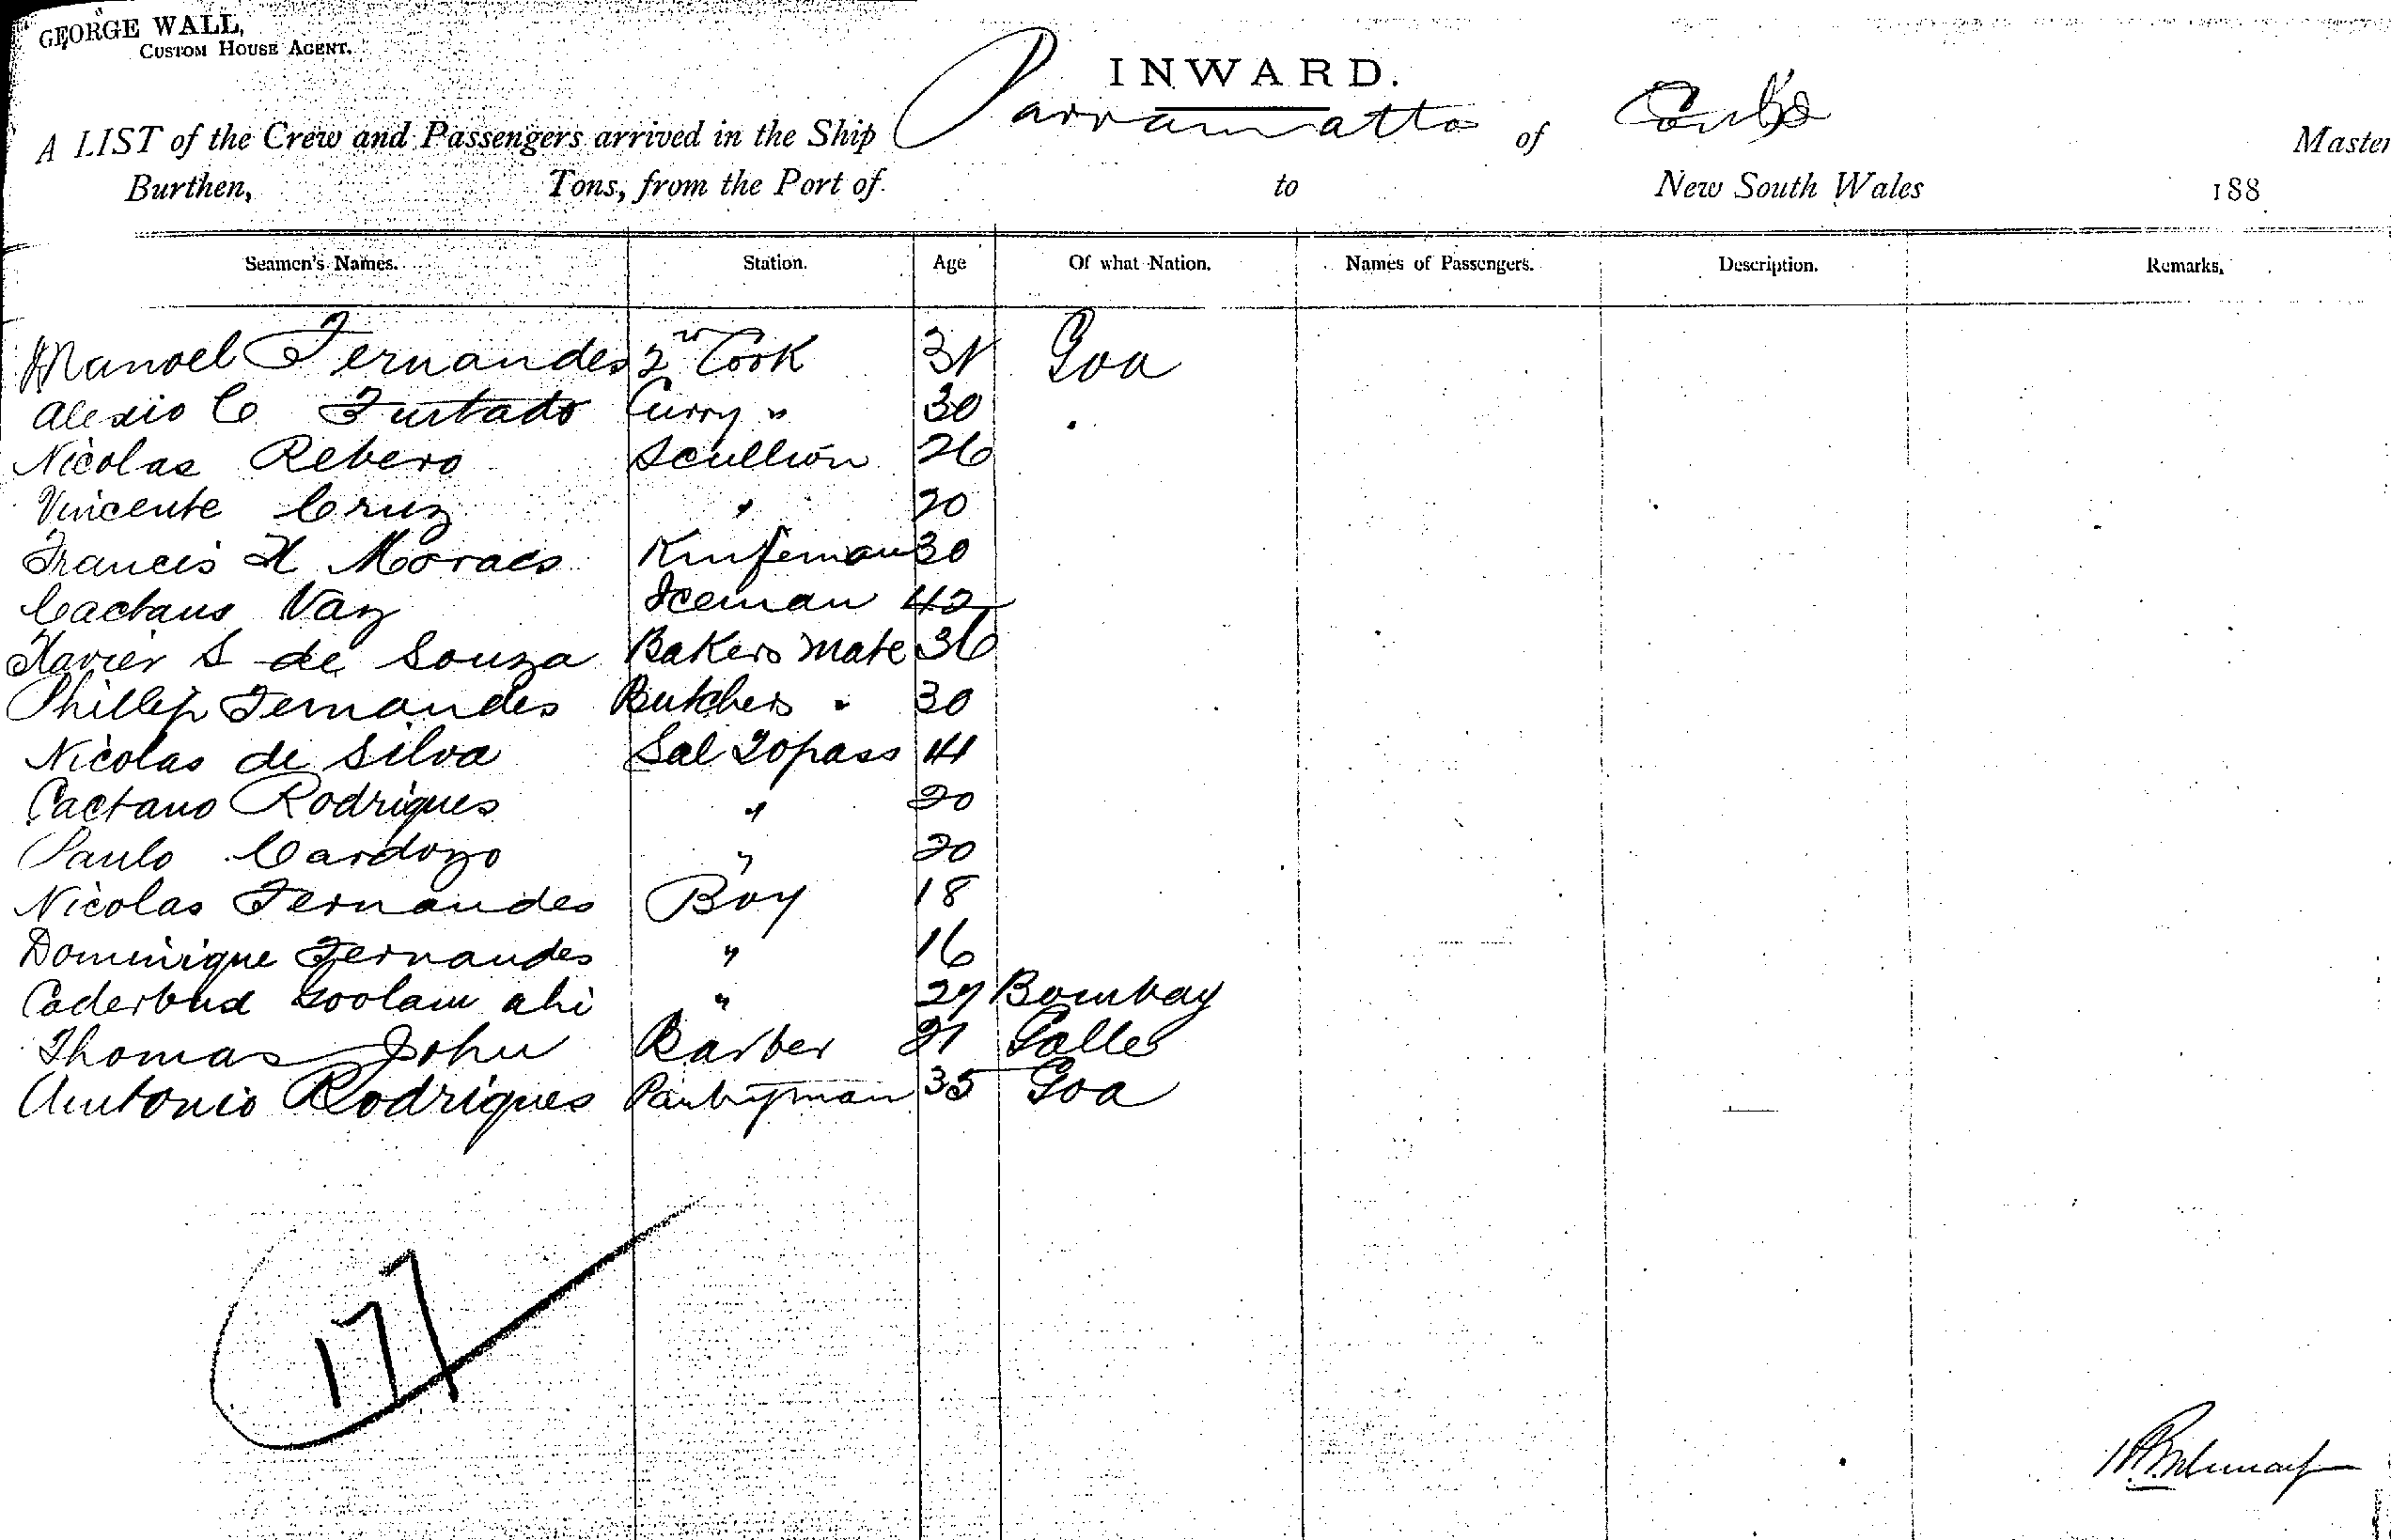 GEORGE WALL,
CUSTOM HOUSE AGENT.
INWARD.
A LIST of the Crew and Passengers arrived in the Ship Parramatta of Master
Burthen, Tons, from the Port of to New South Wales 188
Seamen's Names. Station. Age Of what Nation. Names of Passengers. Description. Remarks.
Manoel Fernandes 2nd Cook 31 Goa
Alexio C Furtado Curry " 30
Nicolas Rebero Scullion 26
Vincente Cruz " 20
Francis X Moraes Knifeman 30
Caetano Vaz Iceman 42
Xavier S de Souza Bakers mate 36
Phillip Fernandes Butchers " 30
Nicolas de Silva Sal Topass 41
Caetano Rodrigues " 20
Paulo Cardozo " 20
Nicolas Fernandes Boy 18
Dominique Fernandes " 16
Caderbux Goolam ali " 27 Bombay
Thomas John Barber 21 Galle
Antonio Rodrigues Pantryman 35 Goa
177